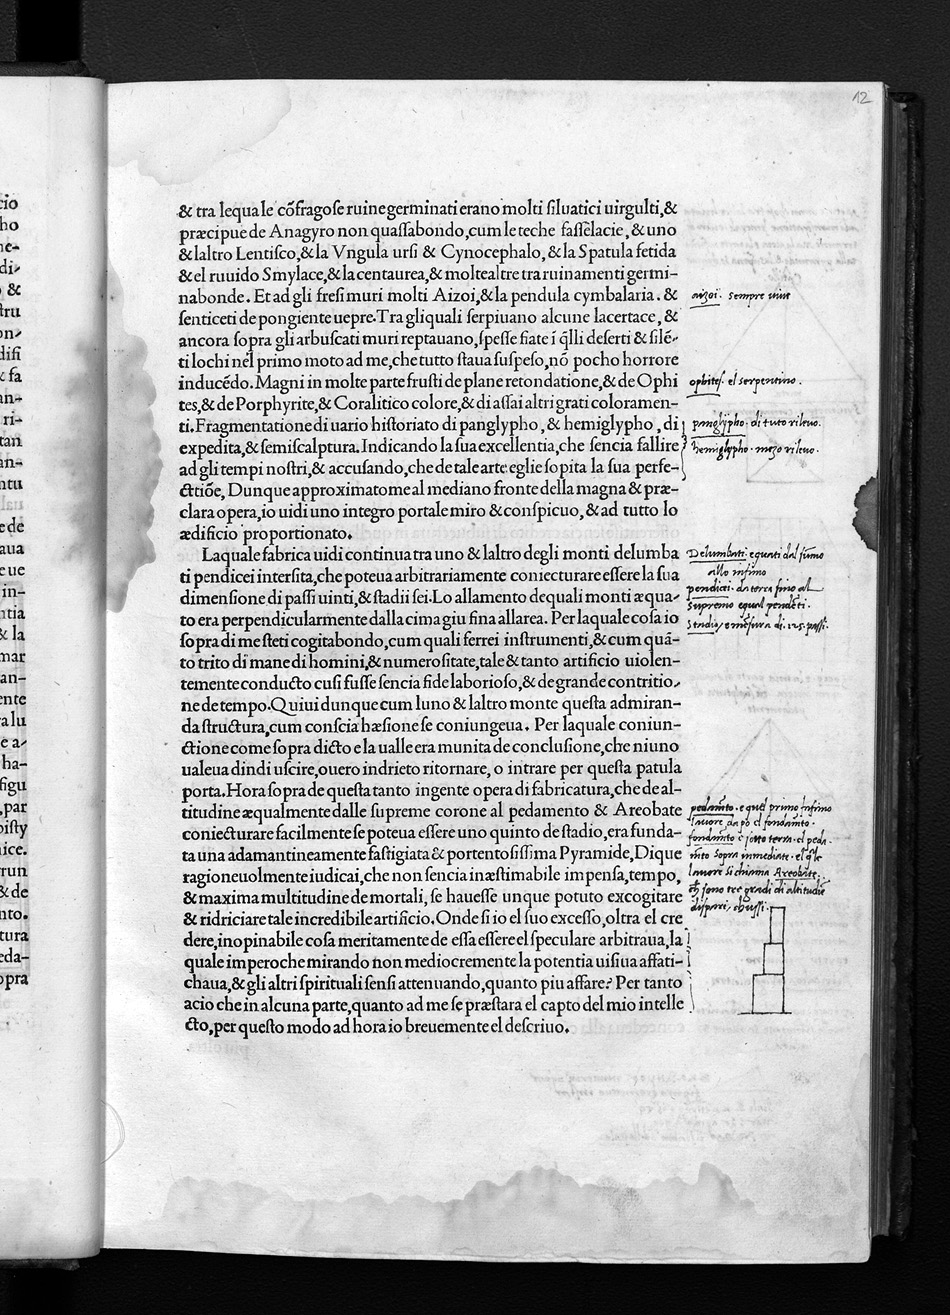 12
& tra lequale cõfragose ruine germinati erano molti siluatici uirgulti, &
præcipue de Anagyro non quassabondo, cum le teche fassèlacie, & uno
& laltro Lentisco, & la Vngula ursi & Cynocephalo, & la Spatula fetida
& el ruuido Smylace, & la centaurea, & molte altre tra ruinamenti germi-
nabonde. Et ad gli fresi muri molti Aizoi, & la pendula cymbalaria. &
senticeti de pongiente uepre. Tra gli quali serpiuano alcune lacertace, &
ancora sopra gli arbuscati muri reptauano, spesse fiate i q̃lli deserti & silẽ-
ti lochi nel primo moto ad me, che tutto staua suspeso, nõ pocho horrore
inducẽdo. Magni in molte parte frusti de plane retondatione, & de Ophi
tes, & de Porphyrite, & Coralitico colore, & di assai altri grati coloramen-
ti. Fragmentatione di uario historiato di panglypho, & hemiglypho, di
expedita, & semiscalptura. Indicando la sua excellentia, che sencia fallire
ad gli tempi nostri, & accusando, che de tale arte eglie sopita la sua perfe-
ctiõe, Dunque approximatome al mediano fronte della magna & præ-
clara opera, io uidi uno integro portale miro & conspicuo, & ad tutto lo
ædificio proportionato.
Laquale fabrica uidi continua tra uno & laltro degli monti delumba
ti pendicei intersita, che poteua arbitrariamente coniecturare essere la sua
dimensione di passi uinti, & stadii sei. Lo allamento de quali monti æqua-
to era perpendicularmente dalla cima giu fina allarea. Per laquale cosa io
sopra di me steti cogitabondo, cum quali ferrei instrumenti, & cum quã-
to trito di mane di homini, & numerositate, tale & tanto artificio uiolen-
temente conducto cusi fusse sencia fide laborioso, & de grande contritio-
ne de tempo. Quiui dunque cum luno & laltro monte questa admiran-
da structura, cum conscia hæsione se coniungeua. Per laquale coniun-
ctione come sopra dicto e la ualle era munita de conclusione, che niuno
ualeua dindi uscire, ouero indrieto ritornare, o intrare per questa patula
porta. Hora sopra de questa tanto ingente opera di fabricatura, che de al-
titudine æqualmente dalle supreme corone al pedamento & Areobate
coniecturare facilmente se poteua essere uno quinto de stadio, era funda-
ta una adamantineamente fastigiata & portentosissima Pyramide, Dique
ragioneuolmente iudicai, che non sencia inæstimabile impensa, tempo,
& maxima multitudine de mortali, se hauesse unque potuto excogitare
& ridriciare tale incredibile artificio. Onde si io el suo excesso, oltra el cre
dere, inopinabile cosa meritamente de essa essere el speculare arbitraua, la
quale imperoche mirando non mediocremente la potentia uisiua affati-
chaua, & gli altri spirituali sensi attenuando, quanto piu affare? Per tanto
acio che in alcuna parte, quanto ad me se præstara el capto del mio intelle
cto, per questo modo ad hora io breuemente el descriuo.
aizoi. sempre uiue
ophites. el serpentino.
panglypho. di tuto rileuo.
hemiglypho. mezo rileuo.
Delumbati. equati dal sũmo
allo infimo
pendicei. da terra fino al
supremo equal pendẽti.
Stadio, e mẽsura di. 125. passi.
pedamẽto. e quel primo infimo
lauore da po el fondamẽto.
fondamẽto è sotto terra. el peda
mẽto sopra inmediate. el q̃le
lauore si chiama Areobate.
ch̃ sono tre gradi di altitudĩe
dispari, chussi.